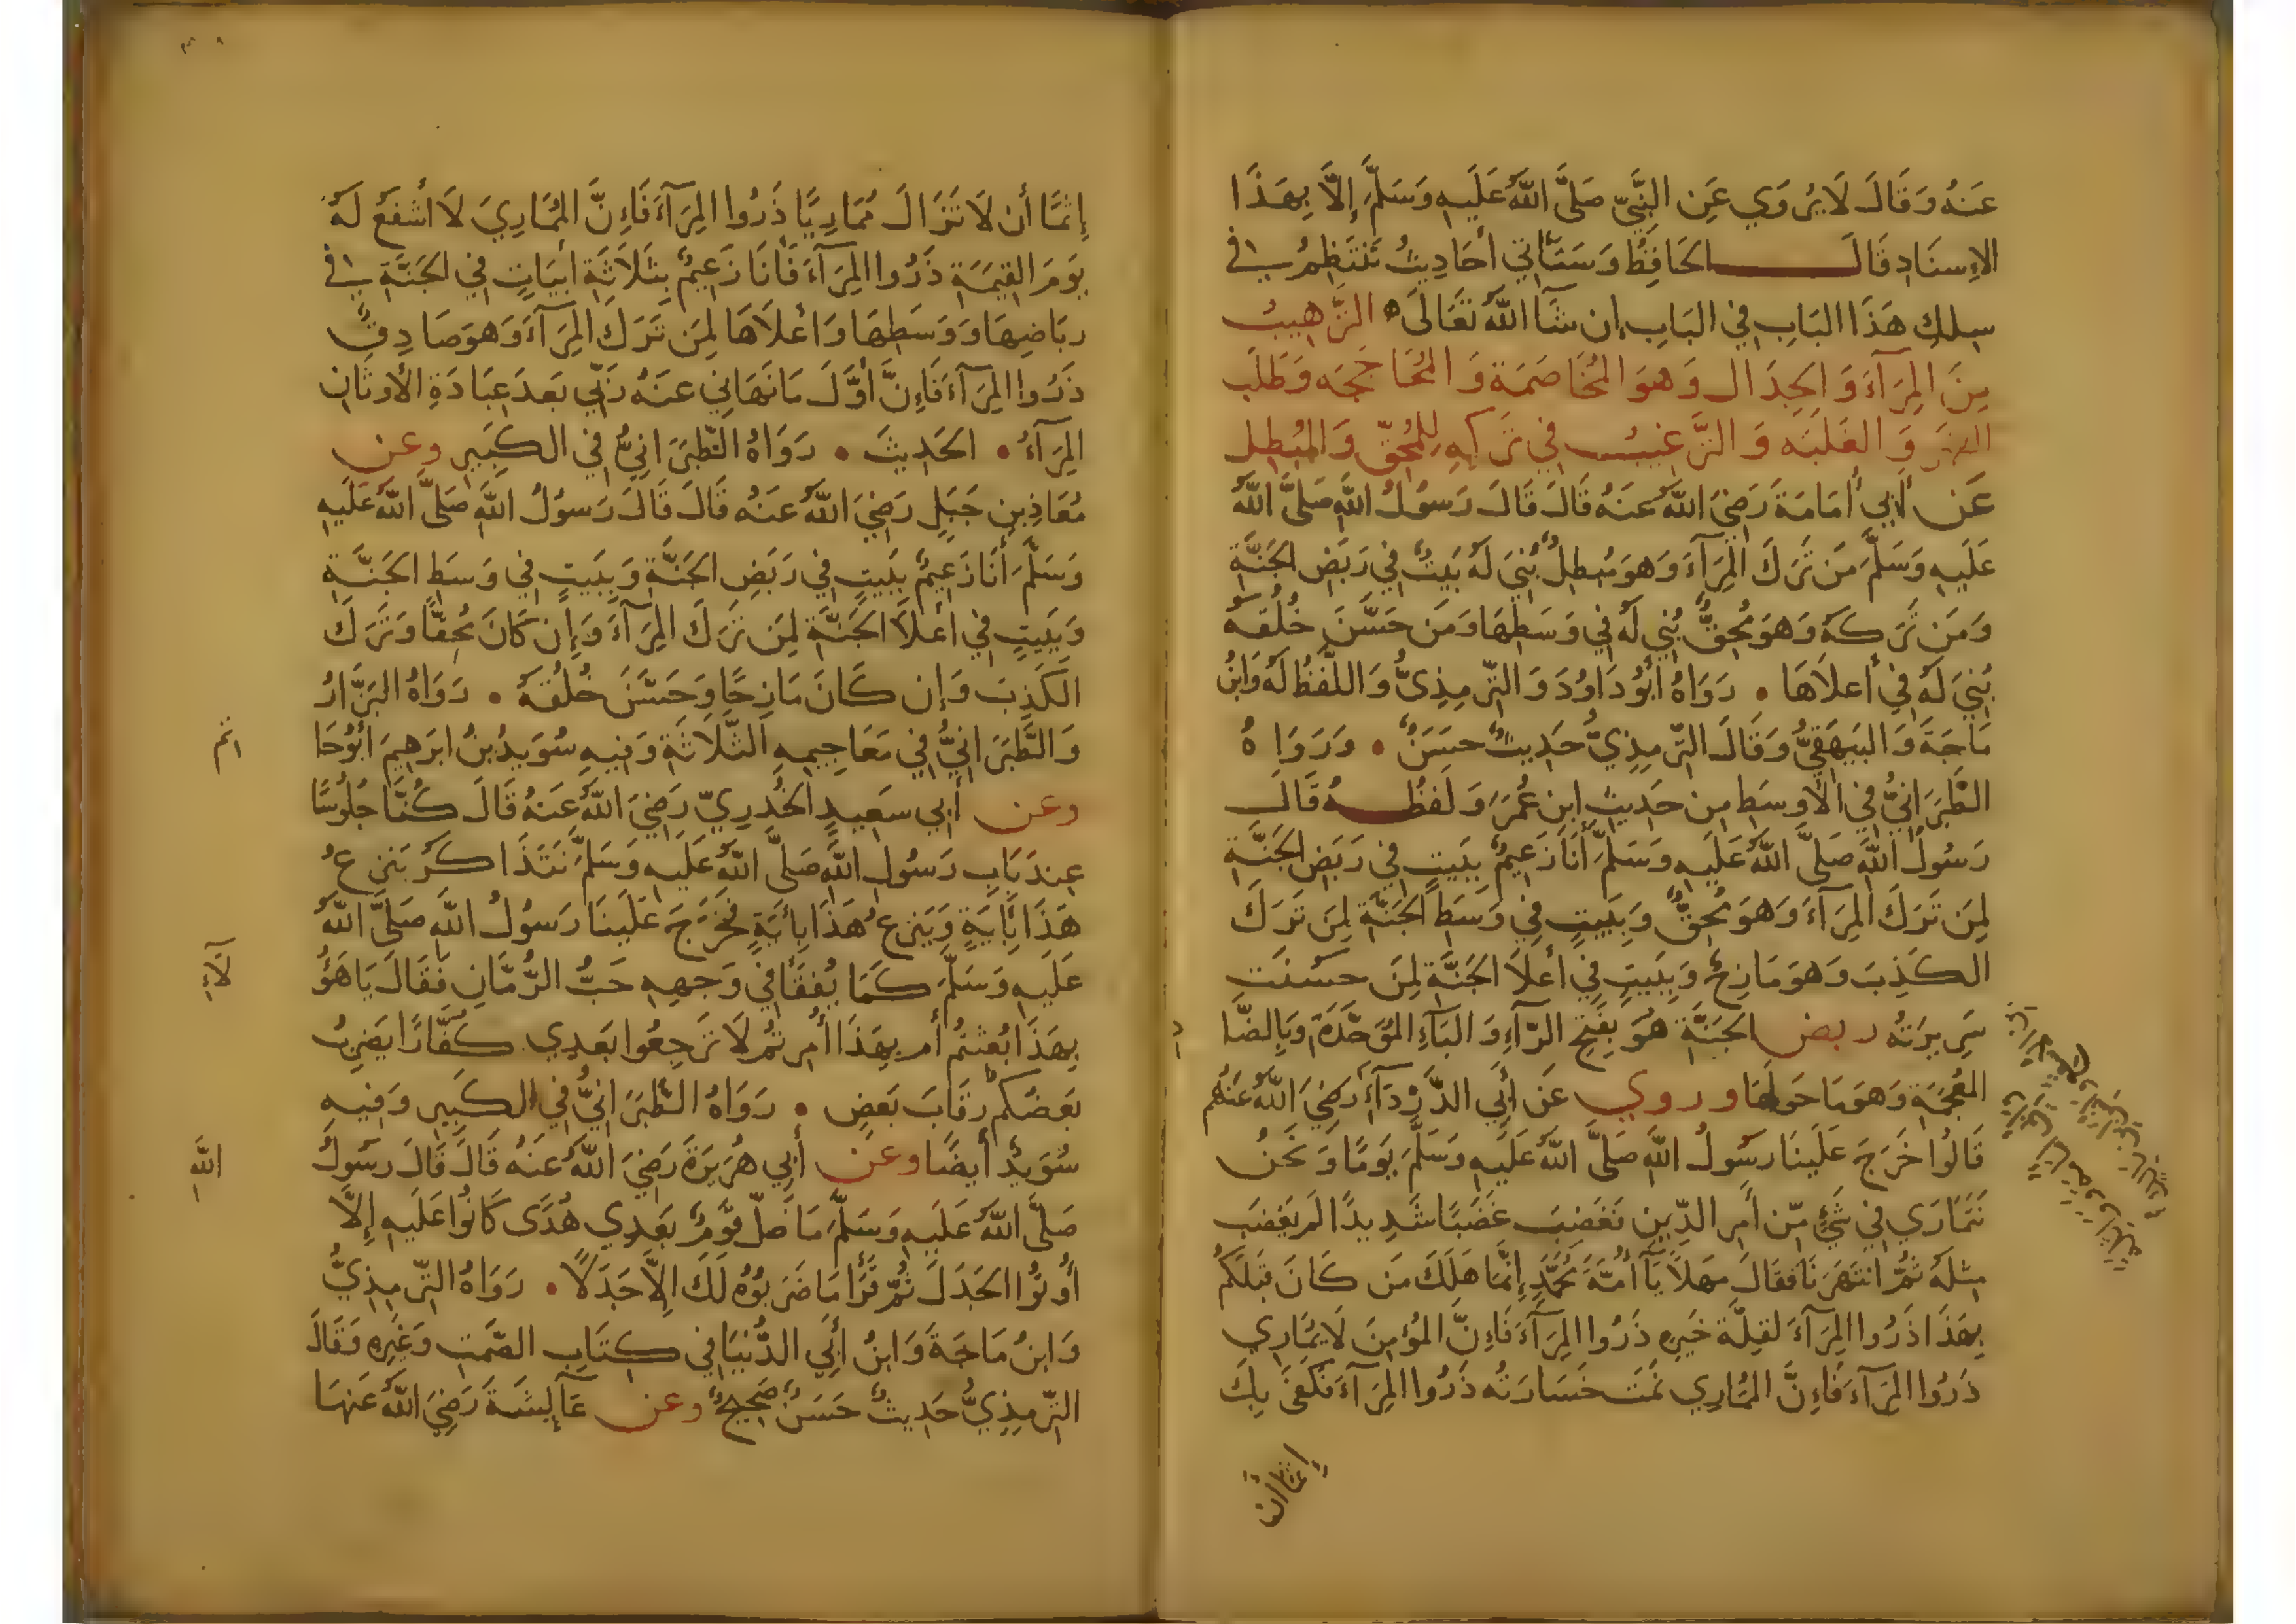 عَنهُ وَقَالَ لَا يُروَي عَنِ النَّبِيِّ صَلَّى اللّٰهُ عَلَيهِ وَسَلَّمَ إِلَّا بِهَذَا
الاِسنَادِ قَالَ الحَافِظُ وَسَتَأتِي أحَادِيثُ تَنتَظِمُ فِي
سِلكِ هَذَا البَابِ فِي البَابِ إن شَآ اللّٰهُ تَعَالَى ه التَّرهِيبُ
مِنَ المِرَآءِ وَالجِدَال وَهوَ المُخَاصَمَة وَالمُحَاجَجَه وَطَلَب
وَالغَلَبَه وَالتَّرغِيبُ فِي تَركِهِ لِلمُحِقّ وَالمُبطِل
عَن أبِي أُمَامَةَ رَضِيَ اللّٰهُ عَنهُ قَالَ قَالَ رَسُولُ اللّٰهِ صَلَّى اللّٰهُ
عَلَيهِ وَسَلَّمَ مَن تَرَكَ المِرَآءَ وَهوَ مُبطِلٌ بُنِيَ لَهُ بَيتٌ فِي رَبَضِ الجَنَّةِ
وَمَن تَرَكَهُ وَهوَ مُحِقٌّ بُنِي لَهُ فِي وَسَطِهَا وَمَن حَسَّنَ خُلُقَهُ
بُنِيَ لَهُ فِي أعلَاهَا • رَوَاهُ أبُو دَاوُدَ وَالتِّرمِذِيُّ وَاللَّفظُ لَهُ وَابنُ
مَاجَةَ وَالبَيهَقِيُّ وَقَالَ التِّرمِذِيُّ حَدِيثٌ حَسَنٌ • وَرَوَاهُ
الطَّبَرَانِيُّ فِي الأَوسَطِ مِن حَدِيثِ ابنِ عُمَرَ وَلَفظُهُ قَالَ
رَسُولُ اللّٰهِ صَلَّى اللّٰهُ عَلَيهِ وَسَلَّمَ أنَا زَعِيمٌ بِبَيتٍ فِي رَبَضِ الجَنَّةِ
لِمَن تَرَكَ المِرَآءَ وَهوَ مُحِقٌّ وَبِبَيتٍ فِي وَسَطِ الجَنَّةِ لِمَن تَرَكَ
الكَذِبَ وَهوَ مَازِحٌ وَبِبَيتٍ فِي أعلَا الجَنَّةِ لِمَن حَسُنَت
سَرِيرَتُه ربض الجَنَّةِ هُوَ بِفَتحِ الرَّآءِ وَالبَآءِ المُوَحَّدَةِ وَبِالضَّا
المُعجَمَةِ وَهوَ مَا حَولَهَا وروي عَن أبِي الدَّردَآءِ رَضِيَ اللّٰهُ عَنهُم
قَالُوا خَرَجَ عَلَينَا رَسُولُ اللّٰهِ صَلَّى اللّٰهُ عَلَيهِ وَسَلَّمَ يَومًا وَنَحنُ
نَتَمَارَي فِي شَيءٍ مِّن أمرِ الدِّينِ فَغَضِبَ غَضَبًا شَدِيدًا لَم يَغضَب
مِثلَهُ ثُمَّ انتَهَرَنَا فَقَالَ مَهلًا يَآ أُمَّةَ مُحَمَّدٍ إِنَّمَا هَلَكَ مَن كَانَ قَبلَكُم
بِهَذَا ذَرُوا المِرَآءَ لِقِلَّةِ خَيرِهِ ذَرُوا المِرَآءَ فَإِنَّ المُؤمِنَ لَا يُمَارِي
ذَرُوا المِرَآءَ فَإِنَّ المُمَارِي تَمَّت خَسَارَتُه ذَرُوا المِرَآءَ فَكَفَى بِكَ
إِثمًا أن
إِثمًا أن لَا تَزَالَ مُمَارِيًا ذَرُوا المِرَآءَ فَإِنَّ المُمَارِيَ لَا أشفَعُ لَهُ
يَومَ القِيَمَةِ ذَرُوا المِرَآءَ فَأنَا زَعِيمٌ بِثَلَاثَةِ أبيَاتٍ فِي الجَنَّةِ فِي
رِبَاضِهَا وَوَسَطِهَا وَأعلَاهَا لِمَن تَرَكَ المِرَآءَ وَهوَ صَادِقٌ
ذَرُوا المِرَآءَ فَإِنَّ أوَّلَ مَا نَهَانِي عَنهُ رَبِّي بَعدَ عِبَادَةِ الأَوثَانِ
المِرَآءُ • الحَدِيثَ • رَوَاهُ الطَّبَرَانِيُّ فِي الكَبِيرِ وعن
مُعَاذِ بنِ جَبَلٍ رَضِيَ اللّٰهُ عَنهُ قَالَ قَالَ رَسُولُ اللّٰهِ صَلَّى اللّٰهُ عَلَيهِ
وَسَلَّمَ أنَا زَعِيمٌ بِبَيتٍ فِي رَبَضِ الجَنَّةِ وَبِبَيتٍ فِي وَسَطِ الجَنَّةِ
وَبِبَيتٍ فِي أعلَا الجَنَّةِ لِمَن تَرَكَ المِرَآءَ وَإِن كَانَ مُحِقًّا وَتَرَكَ
الكَذِبَ وَإِن كَانَ مَازِحًا وَحَسَّنَ خُلُقَهُ • رَوَاهُ البَزَّارُ
وَالطَّبَرَانِيُّ فِي مَعَاجِيمِهِ الثَّلَاثَةِ وَفِيهِ سُوَيدُ بنُ ابرَهِيمَ أبُو حَا
تم
وعن أبِي سَعِيدٍ الخُدرِيِّ رَضِيَ اللّٰهُ عَنهُ قَالَ كُنَّا جُلُوسًا
عِندَ بَابِ رَسُولِ اللّٰهِ صَلَّى اللّٰهُ عَلَيهِ وَسَلَّمَ نَتَذَاكَرُ يَنزِعُ
هَذَا بِآيَةٍ وَيَنزِعُ هَذَا بِآيَةٍ فَخَرَجَ عَلَينَا رَسُولُ اللّٰهِ صَلَّى اللّٰهُ
عَلَيهِ وَسَلَّمَ كَمَا يُفقَأُ فِي وَجهِهِ حَبُّ الرُّمَّانِ فَقَالَ يَا هَؤُ
لَآءِ
بِهَذَا بُعِثتُم أم بِهَذَا أُمِرتُم لَا تَرجِعُوا بَعدِي كُفَّارًا يَضرِبُ
بَعضُكُم رِقَابَ بَعضٍ • رَوَاهُ الطَّبَرَانِيُّ فِي الكَبِيرِ وَفِيهِ
سُوَيدٌ أيضًا وعن أبِي هُرَيرَةَ رَضِيَ اللّٰهُ عَنهُ قَالَ قَالَ رَسُولُ
اللّٰهِ
صَلَّى اللّٰهُ عَلَيهِ وَسَلَّمَ مَا ضَلَّ قَومٌ بَعدِي هُدًى كَانُوا عَلَيهِ إِلَّا
أُوتُوا الجَدَلَ ثُمَّ قَرَأَ مَا ضَرَبُوهُ لَكَ اِلَّا جَدَلًا • رَوَاهُ التِّرمِذِيُّ
وَابنُ مَاجَةَ وَابنُ أبِي الدُّنيَا فِي كِتَابِ الصَّمتِ وَغَيرِهِ وَقَالَ
التِّرمِذِيُّ حَدِيثٌ حَسَنٌ صَحِيحٌ وعن عَآئِشَةَ رَضِيَ اللّٰهُ عَنهَا